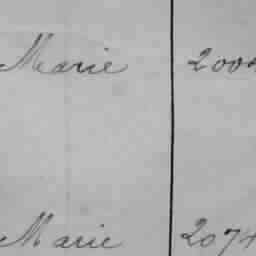 Marie 2004
Marie 2074